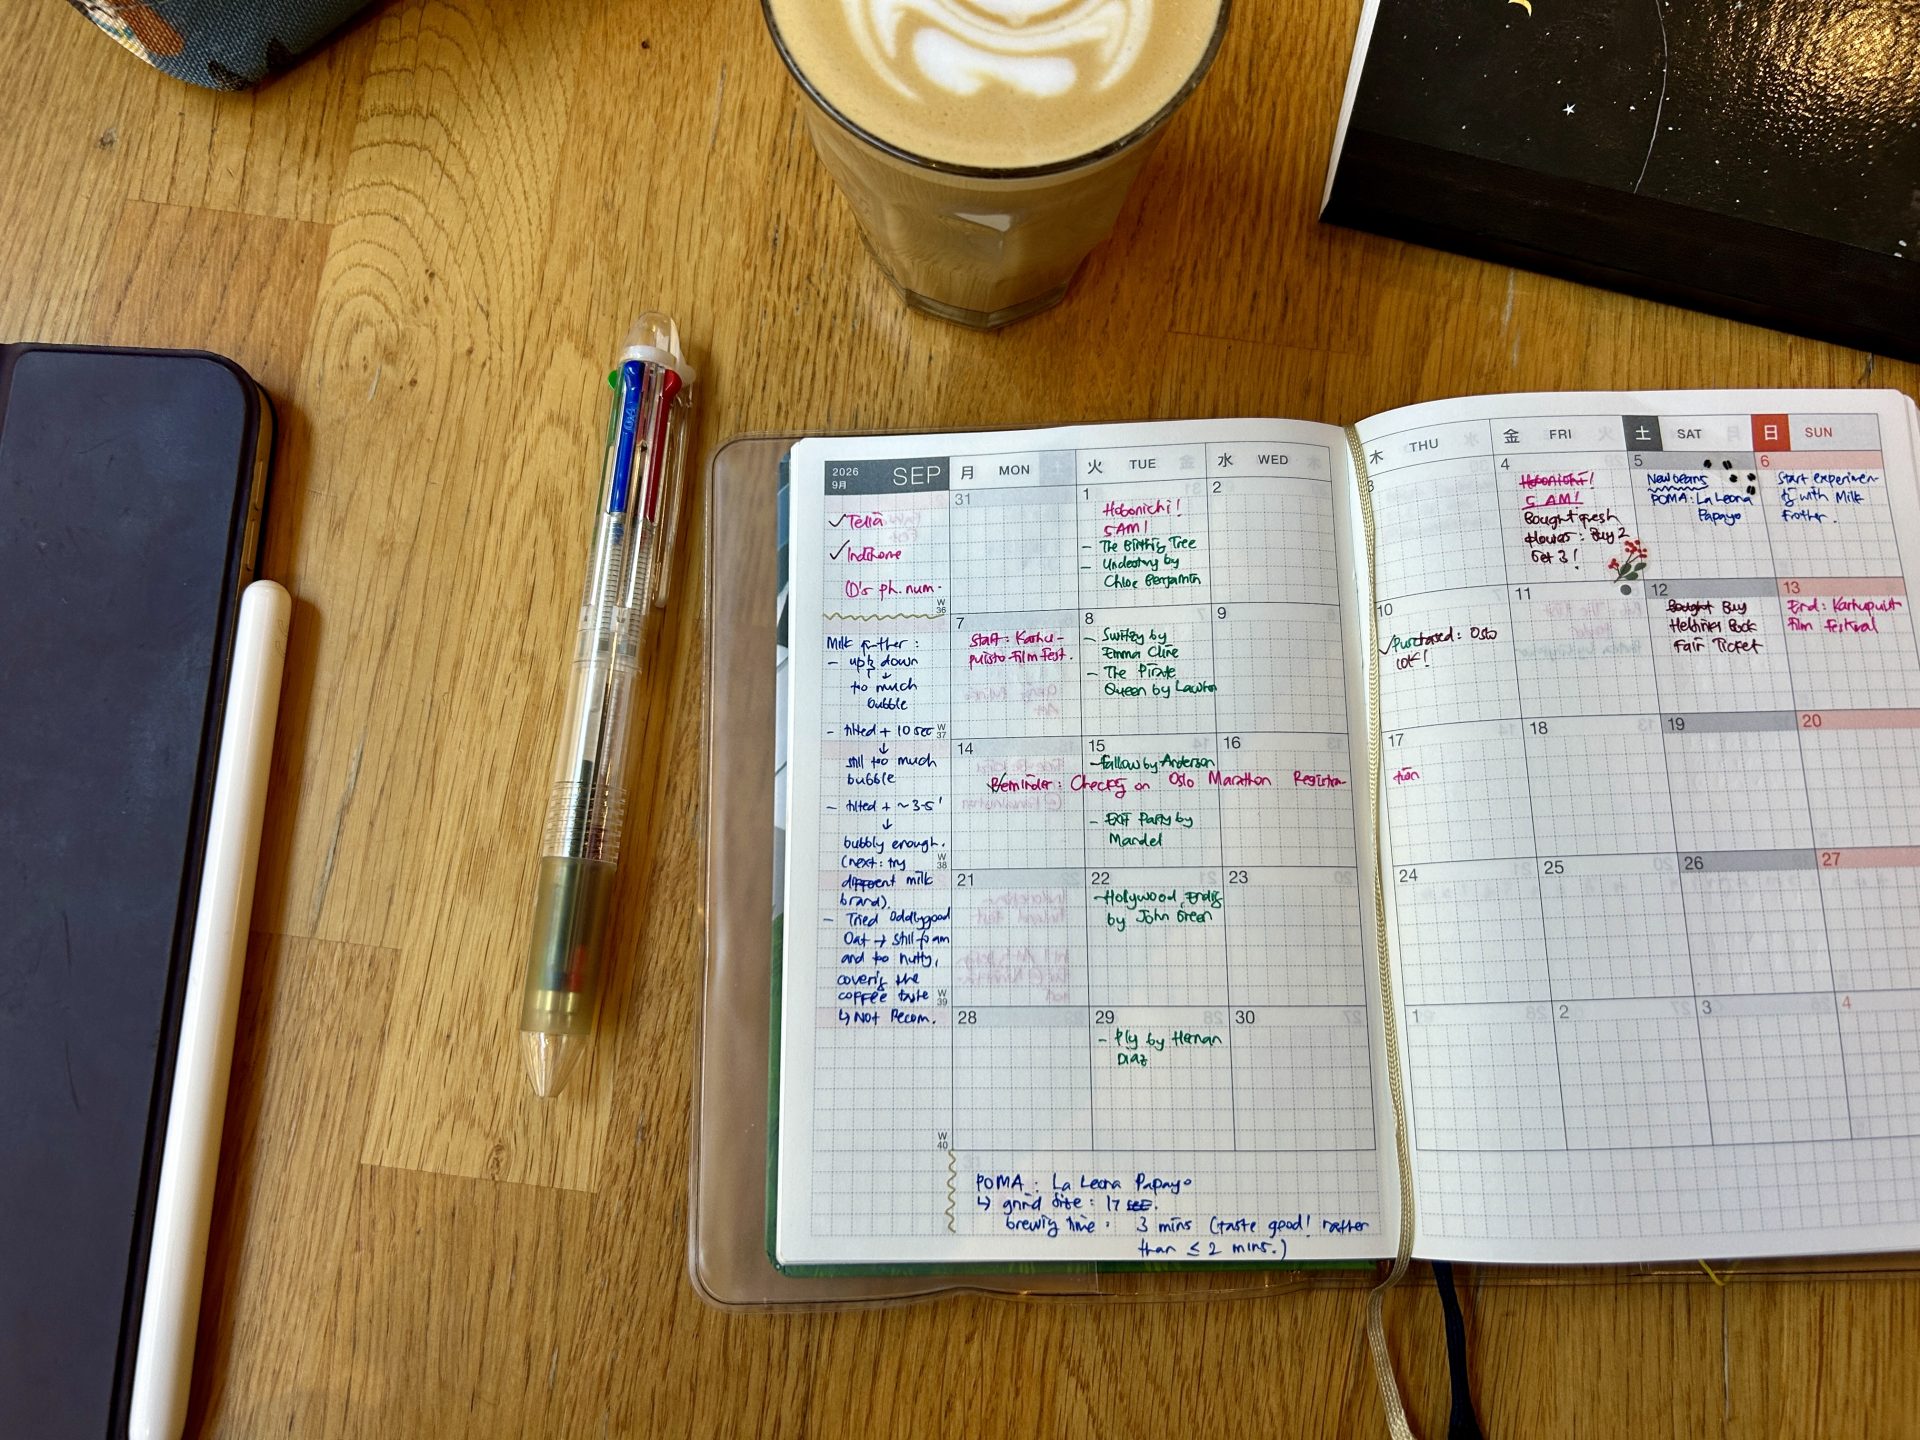 2026
9月
SEP
月 MON
火 TUE
水 WED
木 THU
金 FRI
土 SAT
日 SUN
✓Telia
✓Indihome
D's ph. num.
W
36
Milk frother :
- up & down
↓
too much
bubble
- tilted + 10 sec
↓
still too much
bubble
W
37
- tilted + ~3-5'
↓
bubbly enough.
(next: try
different milk
brand).
W
38
- Tried Oddlygood
Oat → still foam
and too nutty,
covering the
coffee taste
↳ Not Recom.
W
39
W
40
31
1
Hobonichi!
5 AM!
- The Birthing Tree
- Undeotny by
Chloe Benjamin
2
3
4
Hobonichi!
5 AM!
Bought fresh
flowers: Buy 2
Get 3!
5
New beans
POMA: La Leona
Papayo
6
Start experimen-
ting with Milk
Frother.
7
Start: Karhu-
puisto Film Fest.
8
- Switzy by
Emma Cline
- The Pirate
Queen by Lawhon
9
10
✓Purchased: Oslo
10K!
11
12
Bought Buy
Helsinki Book
Fair Ticket
13
End: Karhupuisto
Film Festival
14
15
- Fallow by Anderson
16
17
Reminder: Checking on Oslo Marathon Registra-
tion
- Exit Party by
Mandel
18
19
20
21
22
- Hollywood, Ending
by John Green
23
24
25
26
27
28
29
- Ply by Hernan
Diaz
30
1
2
3
4
POMA : La Leona Papayo
↳ grind size : 17 sec.
brewing time : 3 mins (taste good! rather
than ≤ 2 mins.)